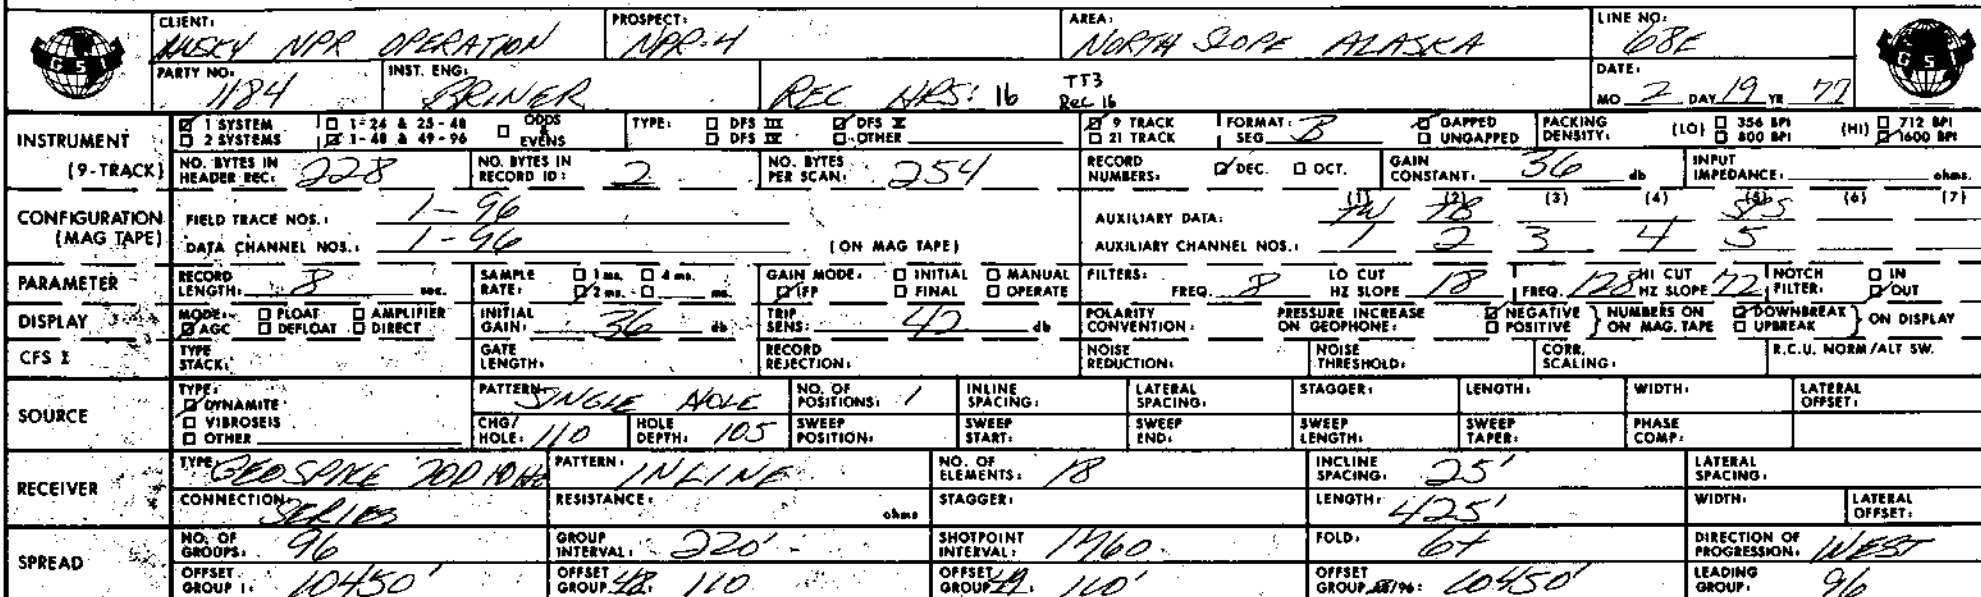 CLIENT: HUSKY NPR OPERATION PROSPECT: NPR-4 AREA: NORTH SLOPE ALASKA LINE NO: 68E
GSI GSI
PARTY NO: 1184 INST. ENG: BRINER REC HRS: 16 TT3 Rec 16 DATE: MO 2 DAY 19 YR 77
INSTRUMENT 1 SYSTEM 1-24 & 25-48 ODDS & EVENS TYPE: DFS III DFS V 9 TRACK FORMAT: SEG B GAPPED PACKING DENSITY: (LO) 356 BPI (HI) 712 BPI
2 SYSTEMS 1-48 & 49-96 DFS IV OTHER 21 TRACK UNGAPPED 800 BPI 1600 BPI
(9-TRACK) NO. BYTES IN HEADER REC: 228 NO. BYTES IN RECORD ID: 2 NO. BYTES PER SCAN: 254 RECORD NUMBERS: DEC. OCT. GAIN CONSTANT: 36 db INPUT IMPEDANCE: ohms.
CONFIGURATION (MAG TAPE) FIELD TRACE NOS.: 1-96 AUXILIARY DATA: (1) TW (2) TB (3) (4) (5) SPS (6) (7)
DATA CHANNEL NOS.: 1-96 (ON MAG TAPE) AUXILIARY CHANNEL NOS.: 1 2 3 4 5
PARAMETER RECORD LENGTH: 8 sec. SAMPLE RATE: 1 ms. 4 ms. 2 ms. ms. GAIN MODE: INITIAL MANUAL IFP FINAL OPERATE FILTERS: FREQ. 8 LO CUT HZ SLOPE 18 FREQ. 128 HI CUT HZ SLOPE 72 NOTCH FILTER: IN OUT
DISPLAY MODE: FLOAT AMPLIFIER AGC DEFLOAT DIRECT INITIAL GAIN: 36 db TRIP SENS: 42 db POLARITY CONVENTION: PRESSURE INCREASE ON GEOPHONE: NEGATIVE POSITIVE } NUMBERS ON ON MAG. TAPE DOWNBREAK UPBREAK } ON DISPLAY
CFS I TYPE STACK: GATE LENGTH: RECORD REJECTION: NOISE REDUCTION: NOISE THRESHOLD: CORR. SCALING: R.C.U. NORM/ALT SW.
SOURCE TYPE: DYNAMITE VIBROSEIS OTHER PATTERN: SINGLE HOLE NO. OF POSITIONS: 1 INLINE SPACING: LATERAL SPACING: STAGGER: LENGTH: WIDTH: LATERAL OFFSET:
CHG/HOLE: 110 HOLE DEPTH: 105 SWEEP POSITION: SWEEP START: SWEEP END: SWEEP LENGTH: SWEEP TAPER: PHASE COMP:
RECEIVER TYPE: GEOSPACE 20D 10HZ PATTERN: INLINE NO. OF ELEMENTS: 18 INCLINE SPACING: 25' LATERAL SPACING:
CONNECTION: SERIES RESISTANCE: ohms STAGGER: LENGTH: 425' WIDTH: LATERAL OFFSET:
SPREAD NO. OF GROUPS: 96 GROUP INTERVAL: 220' SHOTPOINT INTERVAL: 1760 FOLD: 6+ DIRECTION OF PROGRESSION: WEST
OFFSET GROUP 1: 10450' OFFSET GROUP 48: 110 OFFSET GROUP 49: 110' OFFSET GROUP /96: 10450' LEADING GROUP: 96